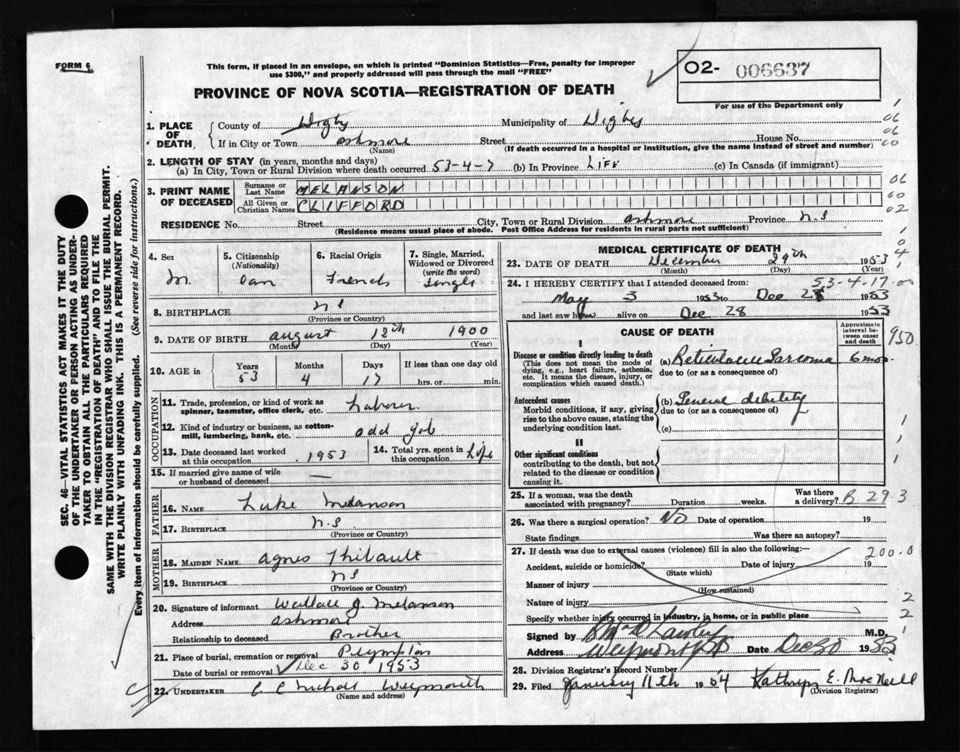 FORM 6
This form, if placed in an envelope, on which is printed "Dominion Statistics—Free, penalty for improper
use $300," and properly addressed will pass through the mail "FREE"
02- 006637
For use of the Department only
PROVINCE OF NOVA SCOTIA—REGISTRATION OF DEATH
SEC. 46—VITAL STATISTICS ACT MAKES IT THE DUTY
OF THE UNDERTAKER OR PERSON ACTING AS UNDER-
TAKER TO OBTAIN ALL THE PARTICULARS REQUIRED
IN THE "REGISTRATION OF DEATH" AND TO FILE THE
SAME WITH THE DIVISION REGISTRAR WHO SHALL ISSUE THE BURIAL PERMIT.
WRITE PLAINLY WITH UNFADING INK. THIS IS A PERMANENT RECORD.
Every item of information should be carefully supplied. (See reverse side for instructions.)
1. PLACE OF DEATH,
County of Digby Municipality of Digby 06
If in City or Town Ashmore Street House No. 06
(Name) (If death occurred in a hospital or institution, give the name instead of street and number) 00
2. LENGTH OF STAY (in years, months and days)
(a) In City, Town or Rural Division where death occurred 53-4-7 (b) In Province Life (c) In Canada (if immigrant)
3. PRINT NAME OF DECEASED
Surname or Last Name MELANSON 06
All Given or Christian Names CLIFFORD 60
02
RESIDENCE No. Street City, Town or Rural Division Ashmore Province N.S
(Residence means usual place of abode. Post Office Address for residents in rural parts not sufficient)
4. Sex
M.
5. Citizenship
(Nationality)
Can
6. Racial Origin
French
7. Single, Married,
Widowed or Divorced
(write the word)
Single
8. BIRTHPLACE N S
(Province or Country)
9. DATE OF BIRTH August 12th 1900
(Month) (Day) (Year)
10. AGE in
Years 53
Months 4
Days 17
If less than one day old
hrs. or min.
OCCUPATION
11. Trade, profession, or kind of work as
spinner, teamster, office clerk, etc. Laborer
12. Kind of industry or business, as cotton-
mill, lumbering, bank, etc. odd job
13. Date deceased last worked
at this occupation 1953
14. Total yrs. spent in
this occupation Life
15. If married give name of wife
or husband of deceased
FATHER
16. NAME Luke Melanson
17. BIRTHPLACE N.S
(Province or Country)
MOTHER
18. MAIDEN NAME Agnes Thibault
19. BIRTHPLACE N S
(Province or Country)
20. Signature of informant Wallace J. Melanson
Address Ashmore
Relationship to deceased Brother
21. Place of burial, cremation or removal Plympton
Date of burial or removal Dec 30 1953
22. UNDERTAKER C C Nichol Weymouth
(Name and address)
MEDICAL CERTIFICATE OF DEATH
23. DATE OF DEATH December 29th 1953
(Month) (Day) (Year)
53-4-17
24. I HEREBY CERTIFY that I attended deceased from:
May 3 1953 to Dec 28 1953
and last saw h alive on Dec 28 1953
CAUSE OF DEATH
Approximate
interval be-
tween onset
and death
950
I
Disease or condition directly leading to death
(This does not mean the mode of
dying, e.g., heart failure, asthenia,
etc. It means the disease, injury, or
complication which caused death.)
(a) Reticulum Sarcoma 6 mos
due to (or as a consequence of)
Antecedent causes
Morbid conditions, if any, giving
rise to the above cause, stating the
underlying condition last.
(b) General debility
due to (or as a consequence of)
(c)
II
Other significant conditions
contributing to the death, but not
related to the disease or condition
causing it.
25. If a woman, was the death
associated with pregnancy? Duration weeks.
Was there
a delivery?
B 293
26. Was there a surgical operation? No Date of operation 19
State findings Was there an autopsy?
27. If death was due to external causes (violence) fill in also the following:— 200.0
Accident, suicide or homicide? Date of injury 19
(State which)
Manner of injury
(How sustained)
Nature of injury 2
Specify whether injury occurred in industry, in home, or in public place 2
Signed by M.D.
Address Weymouth Date Dec 30 1953
28. Division Registrar's Record Number
29. Filed January 11th 1954 Kathryn E. MacNeill
(Division Registrar)